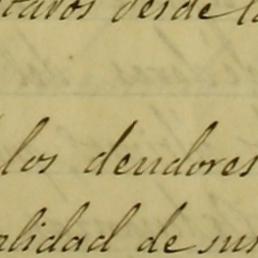 tavos desde la
los deudores
alidad de sus